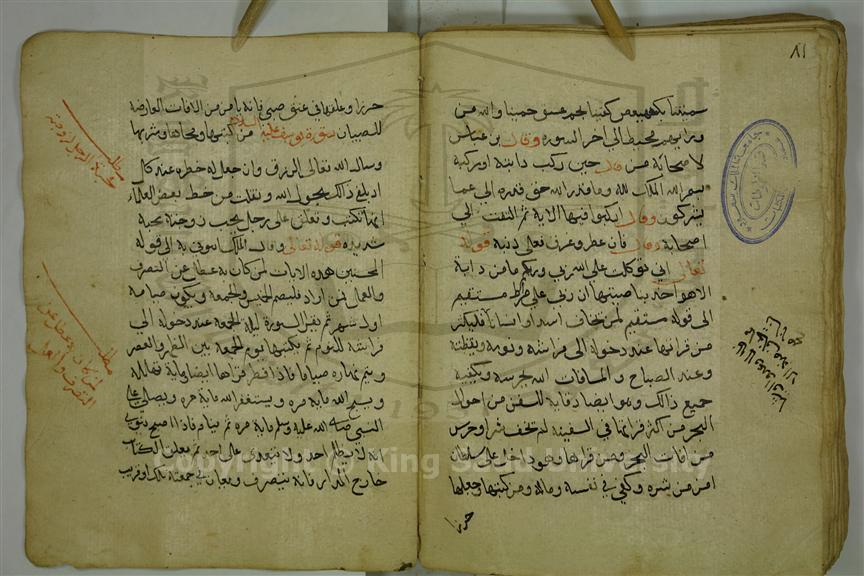 ٨١
سمينا بكهيعص كفينا بحمعسق حمينا والله من
ورائهم محيط الى اخر السورة وقال بن عباس
لاصحابه من قال حين ركب دابته او ركبه
بسم الله الملك لله وما قدروا الله حق قدره الى عما
يشركون وقال اركبوا فيها الاية ثم التفت الى
اصحابه وقال فان عطب او غرق فعلى ديته قوله
تعالى اني توكلت على الله ربي وربكم ما من دابة
الا هو اخذ بناصيتها ان ربي على صراط مستقيم
الى قوله مستقيم لمن يخاف اسد او انسانا فليكثر
من قراتها عند دخوله الى فراشه ونومه ويقظته
وعند الصباح و المسافات الله يحرسه ويكفيه
جميع ذالك وهو ايضا وقاية للسفن من احوال
البحر من اكثر قراتها في السفينة لم يخف شرا وحرس
من افات البحر ومن قراها وهو داخل على سلطان
امن من شره وكفي في نفسه وماله ومن كتبها وجعلها
حرزا
حرزا وعلقها في عنق صبي فانه يامن من الافات العارضة
للصبيان سورة يوسف عليه السلام من كتبها ومحاها وشربها
وسال الله تعالى الرزق وان جعل له خطوة عند كل
احد بلغ ذالك بحول الله ونقلت من خط بعض العلماء
انها تكتب وتعلق على رجل يحب زوجته محبة
شديدة قوله تعالى وقال الملك ائتوني به الى قوله
المحسنين هذه الايات لمن كان به عطل عن التصرف
والعمل لمن اراد فليصم الخميس والجمعة ويكون صيامه
اول شهر ثم يقرا السورة ليلة الجمعة عند دخوله الى
فراشه للنوم ثم يكتبها يوم الجمعة بين الظهر والعصر
ويتم نهاره صياما فاذا افطر قراها ايضا وليلة فهلله
ويسبح الله ماية مرة ويستغفر الله ماية مرة ويصلي على
النبي صلى الله عليه وسلم ماية مرة ثم ينام فاذا اصبح ينوي
انه لا يظلم احد ولا يتعدى على احد ثم يعلق الكتاب
خارج الدار فانه يتصرف ويعان في جمعته تلك او قريب
مطلب
محبة الرجل لزوجته
مطلب
لمن كان به عطل عن
التصرف والعمل
Copyright © King Saud University
1957